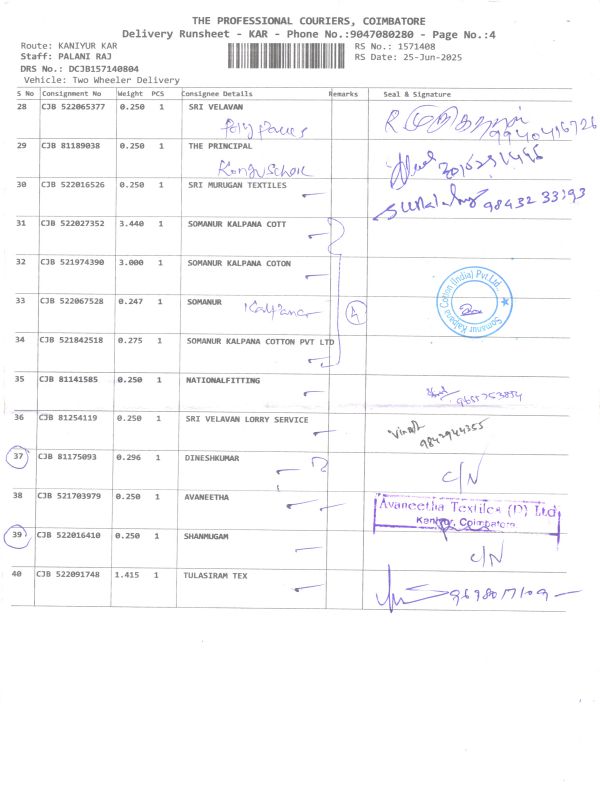 THE PROFESSIONAL COURIERS, COIMBATORE
Delivery Runsheet - KAR - Phone No.:9047080280 - Page No.:4
Route: KANIYUR KAR RS No.: 1571408
Staff: PALANI RAJ RS Date: 25-Jun-2025
DRS No.: DCJB157140804
Vehicle: Two Wheeler Delivery
S No Consignment No Weight PCS Consignee Details Remarks Seal & Signature
28 CJB 522065377 0.250 1 SRI VELAVAN
9940416726
29 CJB 81189038 0.250 1 THE PRINCIPAL
30 CJB 522016526 0.250 1 SRI MURUGAN TEXTILES
98432 33193
31 CJB 522027352 3.440 1 SOMANUR KALPANA COTT
32 CJB 521974390 3.000 1 SOMANUR KALPANA COTON
33 CJB 522067528 0.247 1 SOMANUR Kalpana 4
Somanur Kalpana Cotton (India) Pvt Ltd.,
34 CJB 521842518 0.275 1 SOMANUR KALPANA COTTON PVT LTD
35 CJB 81141585 0.250 1 NATIONALFITTING
36 CJB 81254119 0.250 1 SRI VELAVAN LORRY SERVICE
9842944355
37 CJB 81175093 0.296 1 DINESHKUMAR
C/N
38 CJB 521703979 0.250 1 AVANEETHA
Avaneetha Textiles (P) Ltd
Kaniyur, Coimbatore
39 CJB 522016410 0.250 1 SHANMUGAM
C/N
40 CJB 522091748 1.415 1 TULASIRAM TEX
9698017109